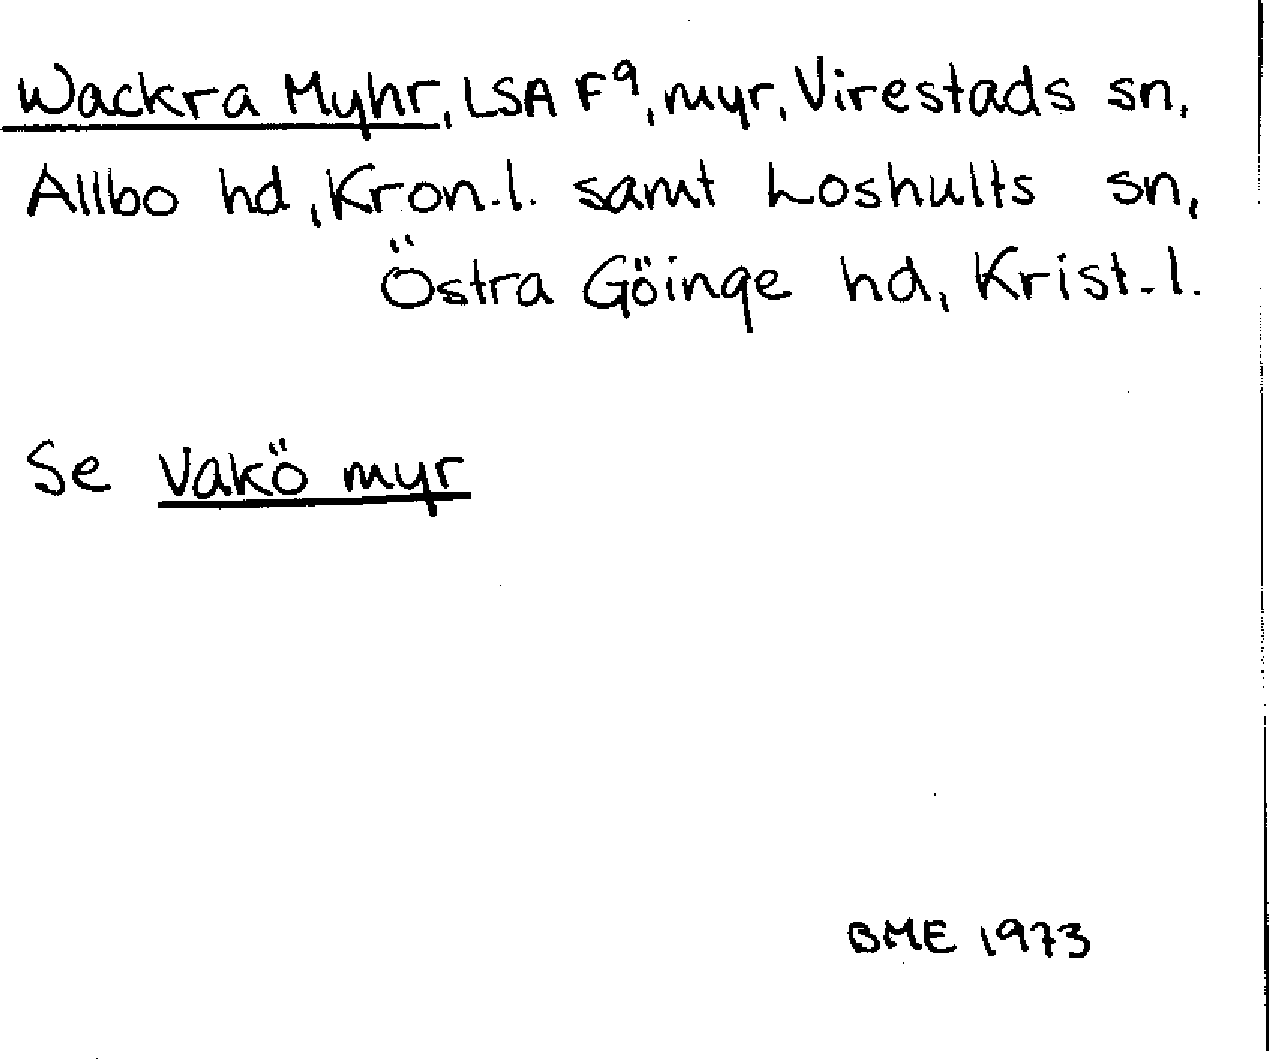 Wackra Myhr, LSA F⁹, myr, Virestads sn,
Allbo hd, Kron.l. samt Loshults sn,
Östra Göinge hd, Krist.l.
Se Vakö myr
BME 1973